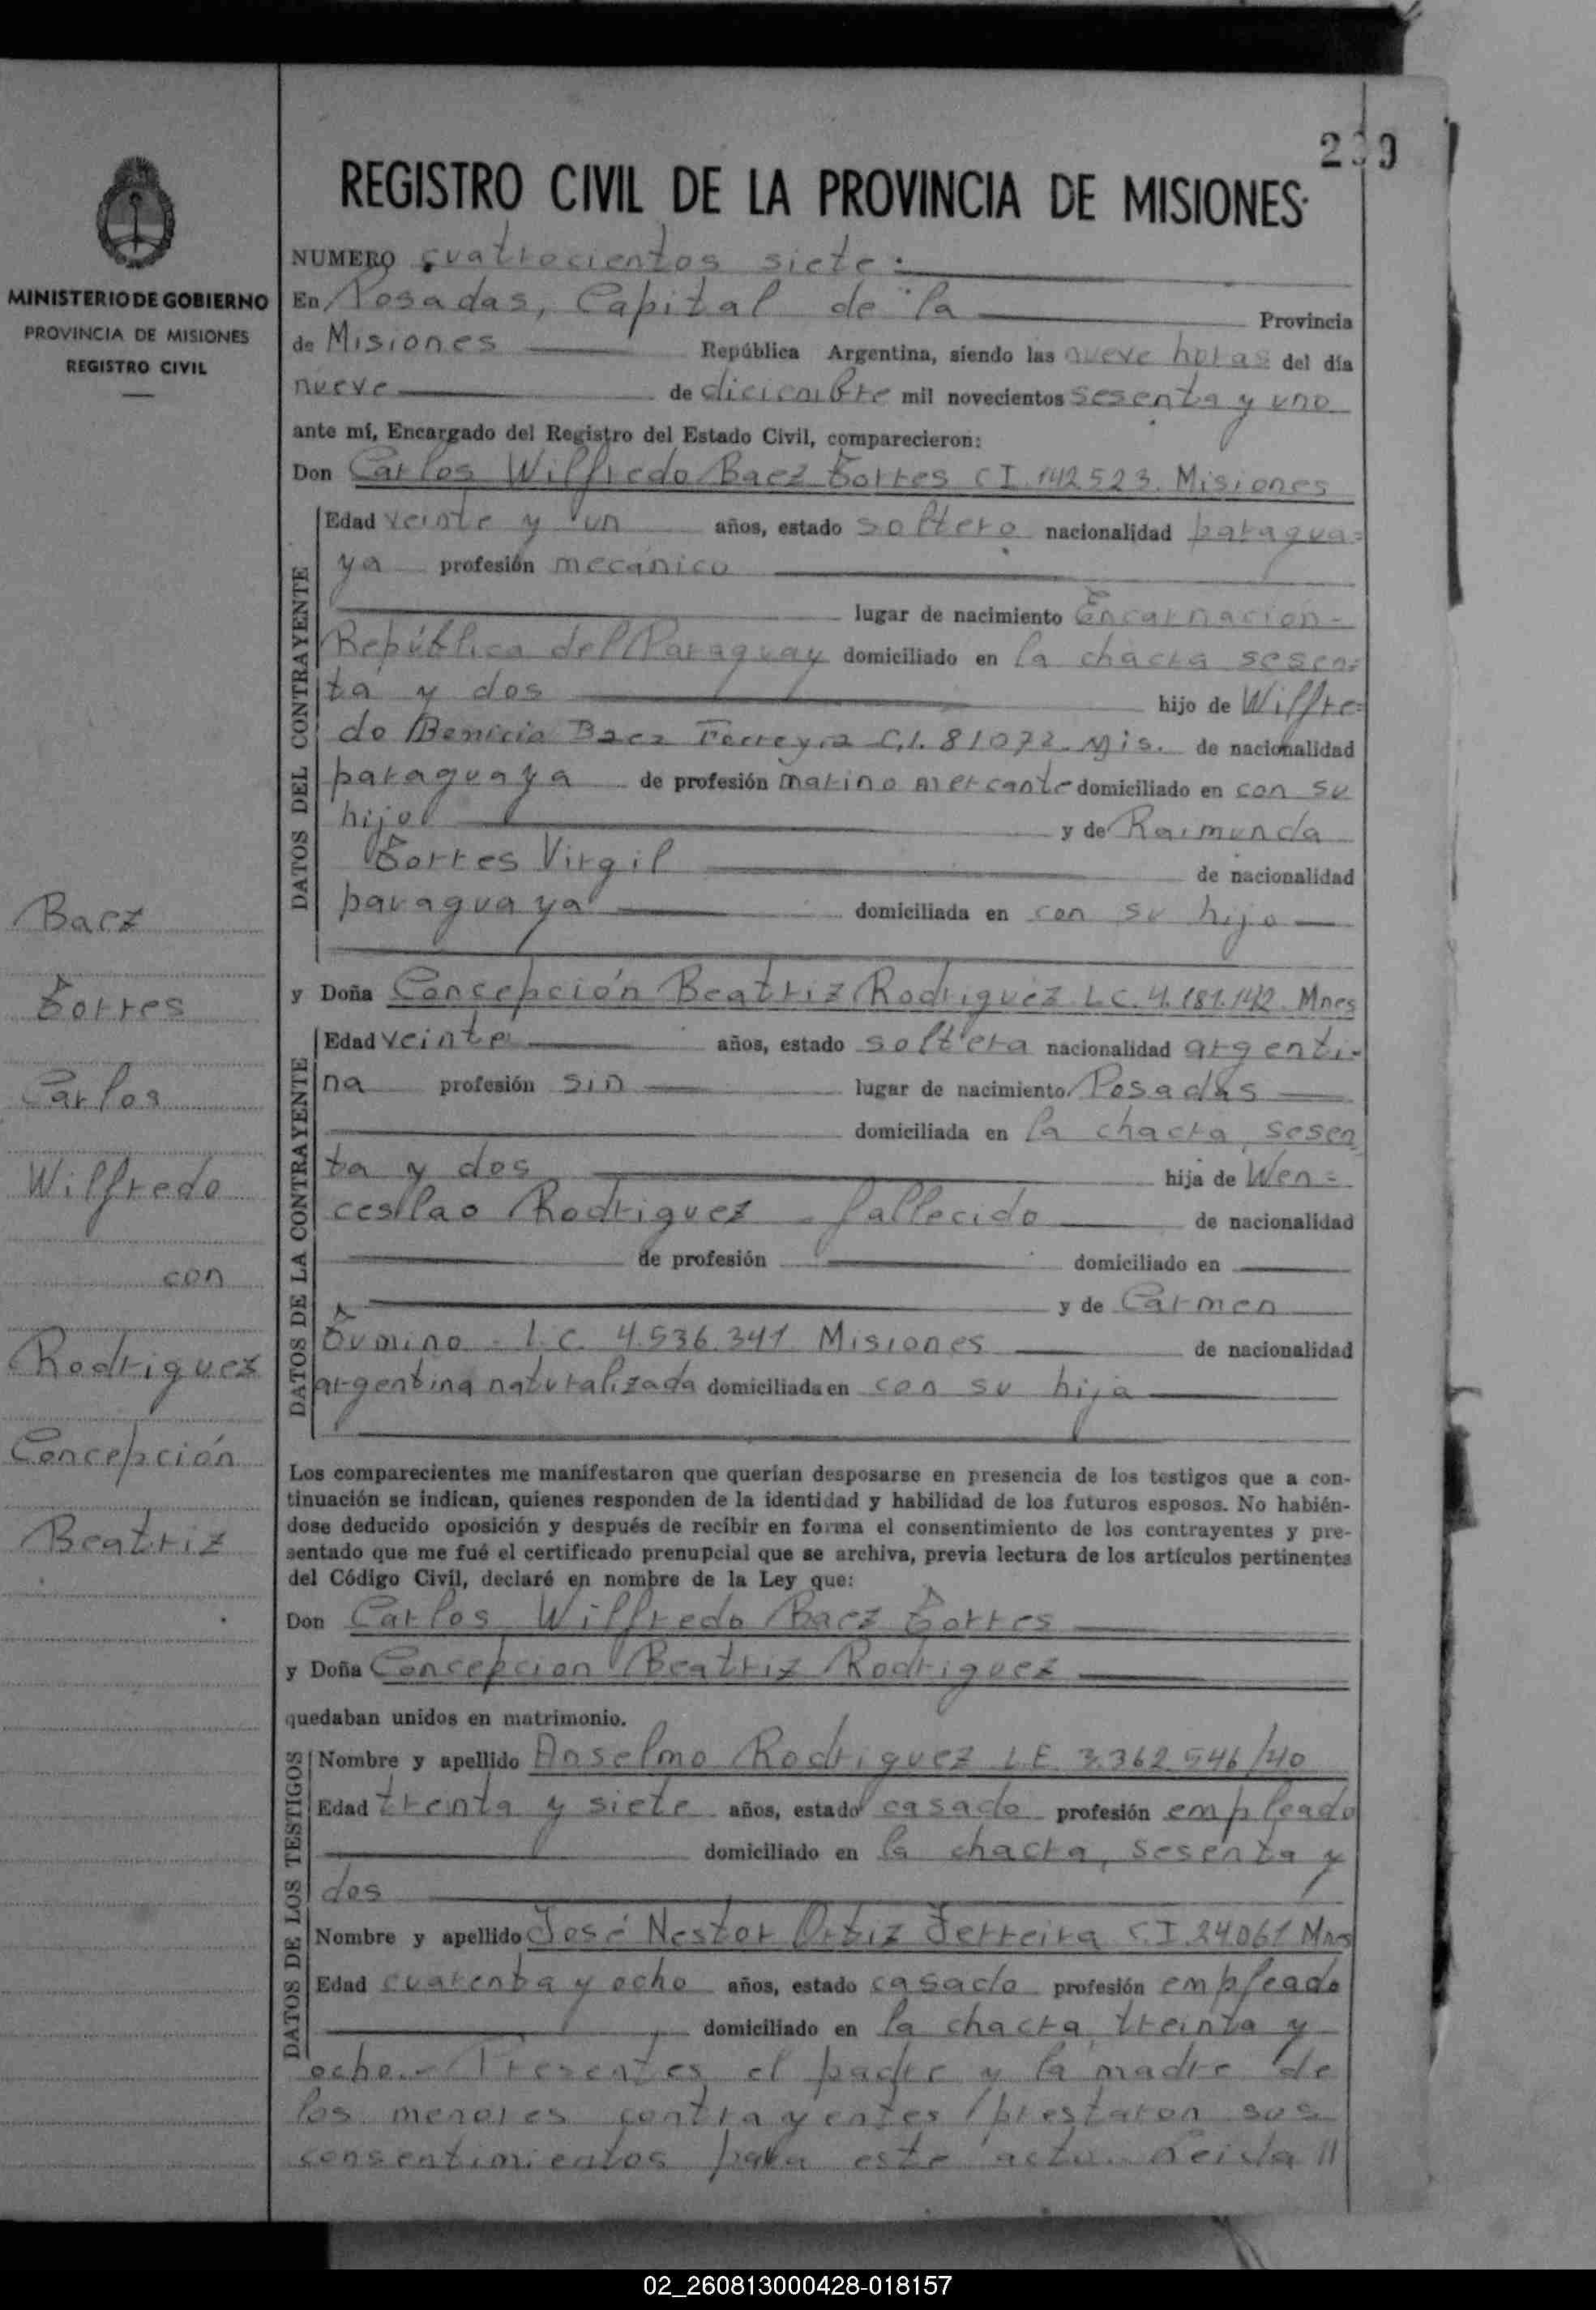 REGISTRO CIVIL DE LA PROVINCIA DE MISIONES
NUMERO cuatrocientos siete.
MINISTERIO DE GOBIERNO
PROVINCIA DE MISIONES
REGISTRO CIVIL
En Posadas, Capital de la Provincia
de Misiones República Argentina, siendo las nueve horas del día
nueve de diciembre mil novecientos sesenta y uno
ante mí, Encargado del Registro del Estado Civil, comparecieron:
Don Carlos Wilfredo Baez Torres C I. 142523. Misiones
DATOS DEL CONTRAYENTE
Edad veinte y un años, estado soltero nacionalidad paragua=
ya profesión mecánico
lugar de nacimiento Encarnación-
República del Paraguay domiciliado en la chacra sesen=
ta y dos hijo de Wilfre=
do Benicio Baez Ferreyra C.I. 81072. Mis. de nacionalidad
paraguaya de profesión marino mercante domiciliado en con su
hijo y de Raimunda
Torres Virgil de nacionalidad
paraguaya domiciliada en con su hijo
y Doña Concepción Beatriz Rodriguez L.C. 4.181.142. Mnes
DATOS DE LA CONTRAYENTE
Edad veinte años, estado soltera nacionalidad argenti-
na profesión sin lugar de nacimiento Posadas
domiciliada en la chacra sesen
ta y dos hija de Wen=
ceslao Rodriguez - fallecido de nacionalidad
de profesión domiciliado en
y de Carmen
Tumino - L.C. 4.536.341 Misiones de nacionalidad
argentina naturalizada domiciliada en con su hija
Los comparecientes me manifestaron que querían desposarse en presencia de los testigos que a con-
tinuación se indican, quienes responden de la identidad y habilidad de los futuros esposos. No habién-
dose deducido oposición y después de recibir en forma el consentimiento de los contrayentes y pre-
sentado que me fué el certificado prenupcial que se archiva, previa lectura de los artículos pertinentes
del Código Civil, declaré en nombre de la Ley que:
Don Carlos Wilfredo Baez Torres
y Doña Concepcion Beatriz Rodriguez
quedaban unidos en matrimonio.
DATOS DE LOS TESTIGOS
Nombre y apellido Anselmo Rodriguez L.E. 3.362.546/40
Edad treinta y siete años, estado casado profesión empleado
domiciliado en la chacra, sesenta y
dos
Nombre y apellido José Nestor Ortiz Ferreira C.I. 24061 Mnes
Edad cuarenta y ocho años, estado casado profesión empleado
domiciliado en la chacra treinta y
ocho.- Presentes el padre y la madre de
los menores contrayentes prestaron sus
consentimientos para este acto. Leida //
Baez
Torres
Carlos
Wilfredo
con
Rodriguez
Concepción
Beatriz
02_260813000428-018157